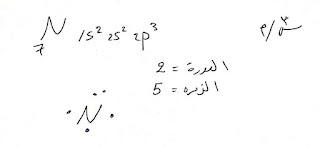 ₇N 1s² 2s² 2p³
الدورة = 2
الزمره = 5
N